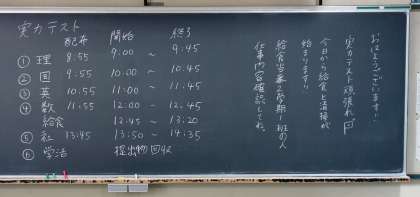 実力テスト
配布 開始 終了
① 理 8:55 9:00 〜 9:45
② 国 9:55 10:00 〜 10:45
③ 英 10:55 11:00 〜 11:45
④ 数 11:55 12:00 〜 12:45
給食 12:45 〜 13:20
⑤ 社 13:45 13:50 〜 14:35
⑥ 学活 提出物回収
おはようございます!!
実力テスト頑張れ
今日から給食と清掃が
始まります!!
給食当番2学期1班の人
仕事内容確認してね。